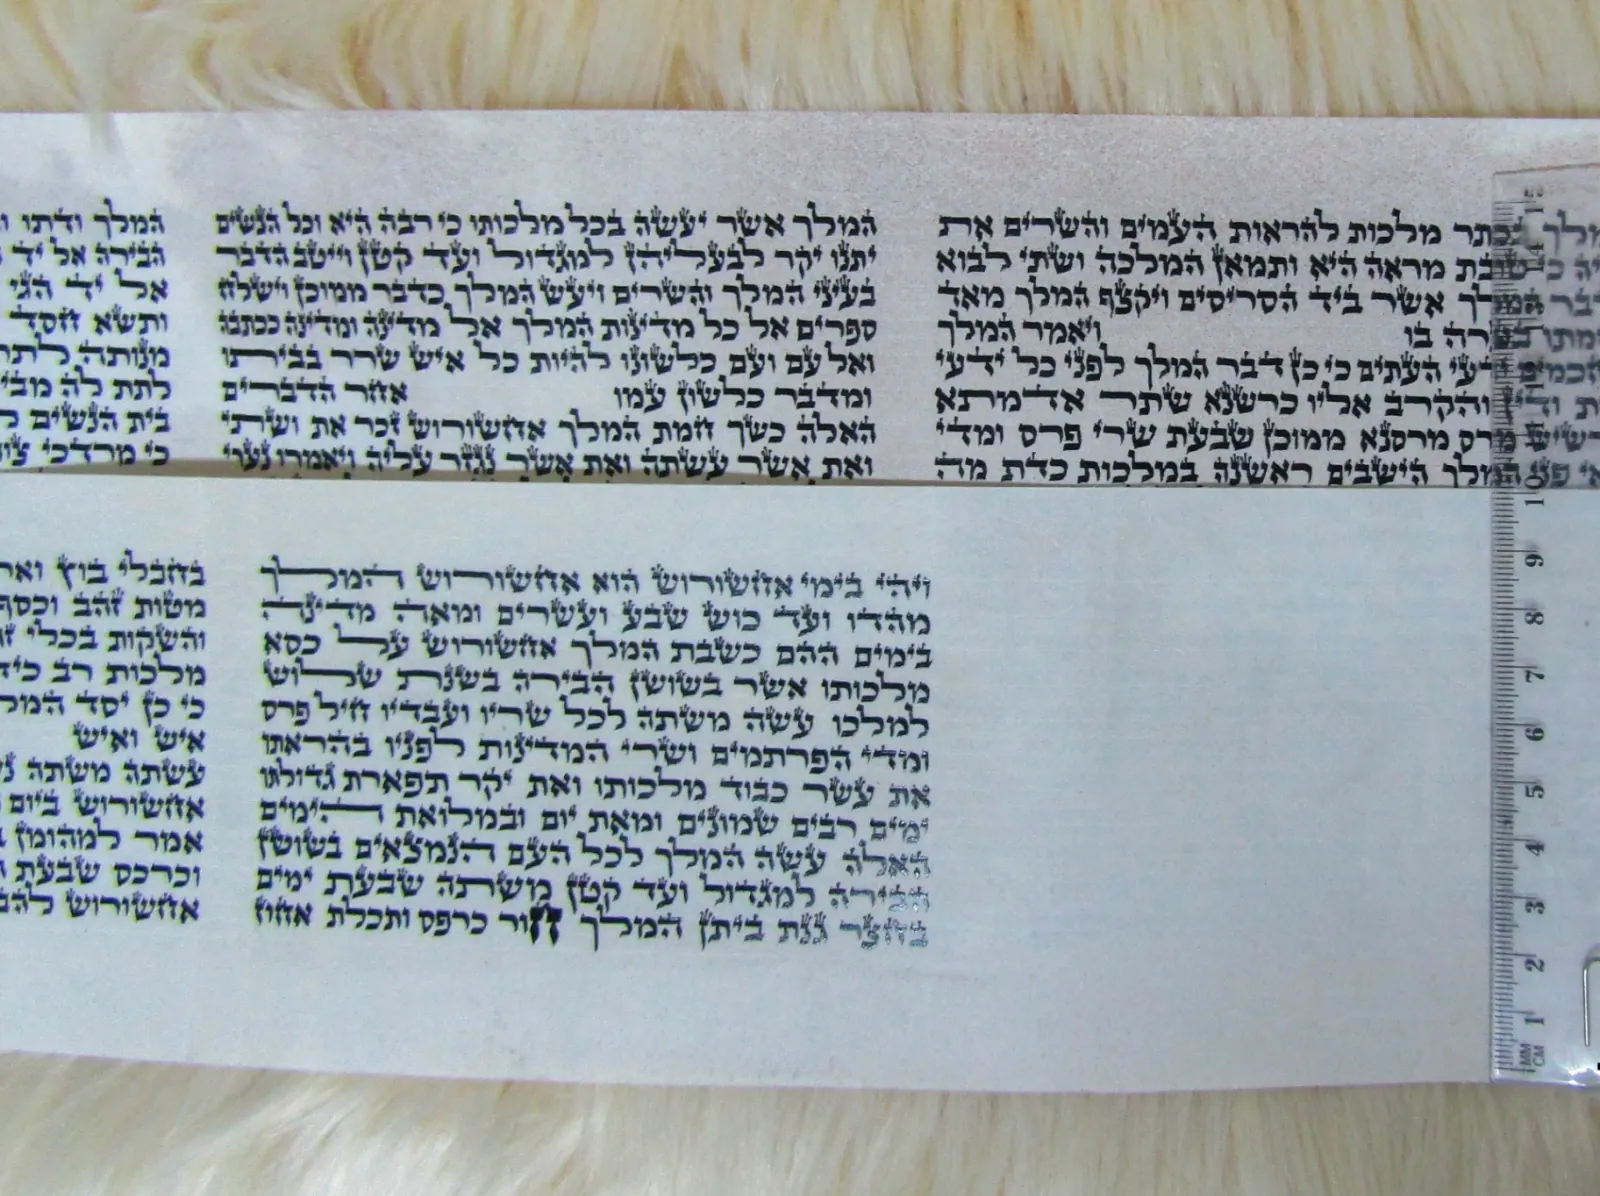 המלך בכתר מלכות להראות העמים והשרים את
כי טובת מראה היא ותמאן המלכה ושתי לבוא
דבר המלך אשר ביד הסריסים ויקצף המלך מאד
בערה בו ויאמר המלך
לחכמים ידעי העתים כי כן דבר המלך לפני כל ידעי
ודין והקרב אליו כרשנא שתר אדמתא
מרס מרסנא ממוכן שבעת שרי פרס ומדי
פני המלך הישבים ראשנה במלכות כדת מה
המלך אשר יעשה בכל מלכותו כי רבה היא וכל הנשים
יתנו יקר לבעליהן למגדול ועד קטן וייטב הדבר
בעיני המלך והשרים ויעש המלך כדבר ממוכן וישלח
ספרים אל כל מדינות המלך אל מדינה ומדינה ככתבה
ואל עם ועם כלשונו להיות כל איש שרר בביתו
ומדבר כלשון עמו אחר הדברים
האלה כשך חמת המלך אחשורוש זכר את ושתי
ואת אשר עשתה ואת אשר נגזר עליה ויאמרו נערי
המלך ודתו
הבירה אל יד
אל יד הגי
ותשא חסד
מנותה לתת
לתת לה
בית הנשים
כי מרדכי
ויהי בימי אחשורוש הוא אחשורוש המלך
מהדו ועד כוש שבע ועשרים ומאה מדינה
בימים ההם כשבת המלך אחשורוש על כסא
מלכותו אשר בשושן הבירה בשנת שלוש
למלכו עשה משתה לכל שריו ועבדיו חיל פרס
ומדי הפרתמים ושרי המדינות לפניו בהראתו
את עשר כבוד מלכותו ואת יקר תפארת גדולתו
ימים רבים שמונים ומאת יום ובמלואת הימים
האלה עשה המלך לכל העם הנמצאים בשושן
הבירה למגדול ועד קטן משתה שבעת ימים
בחצר גנת ביתן המלך חור כרפס ותכלת אחוז
בחבלי בוץ
מטות זהב וכסף
והשקות בכלי
מלכות רב כיד
כי כן יסד המלך
איש ואיש
עשתה משתה
אחשורוש ביום
אמר למהומן
וכרכס שבעת
אחשורוש
MM
CM
1
2
3
4
5
6
7
8
9
10